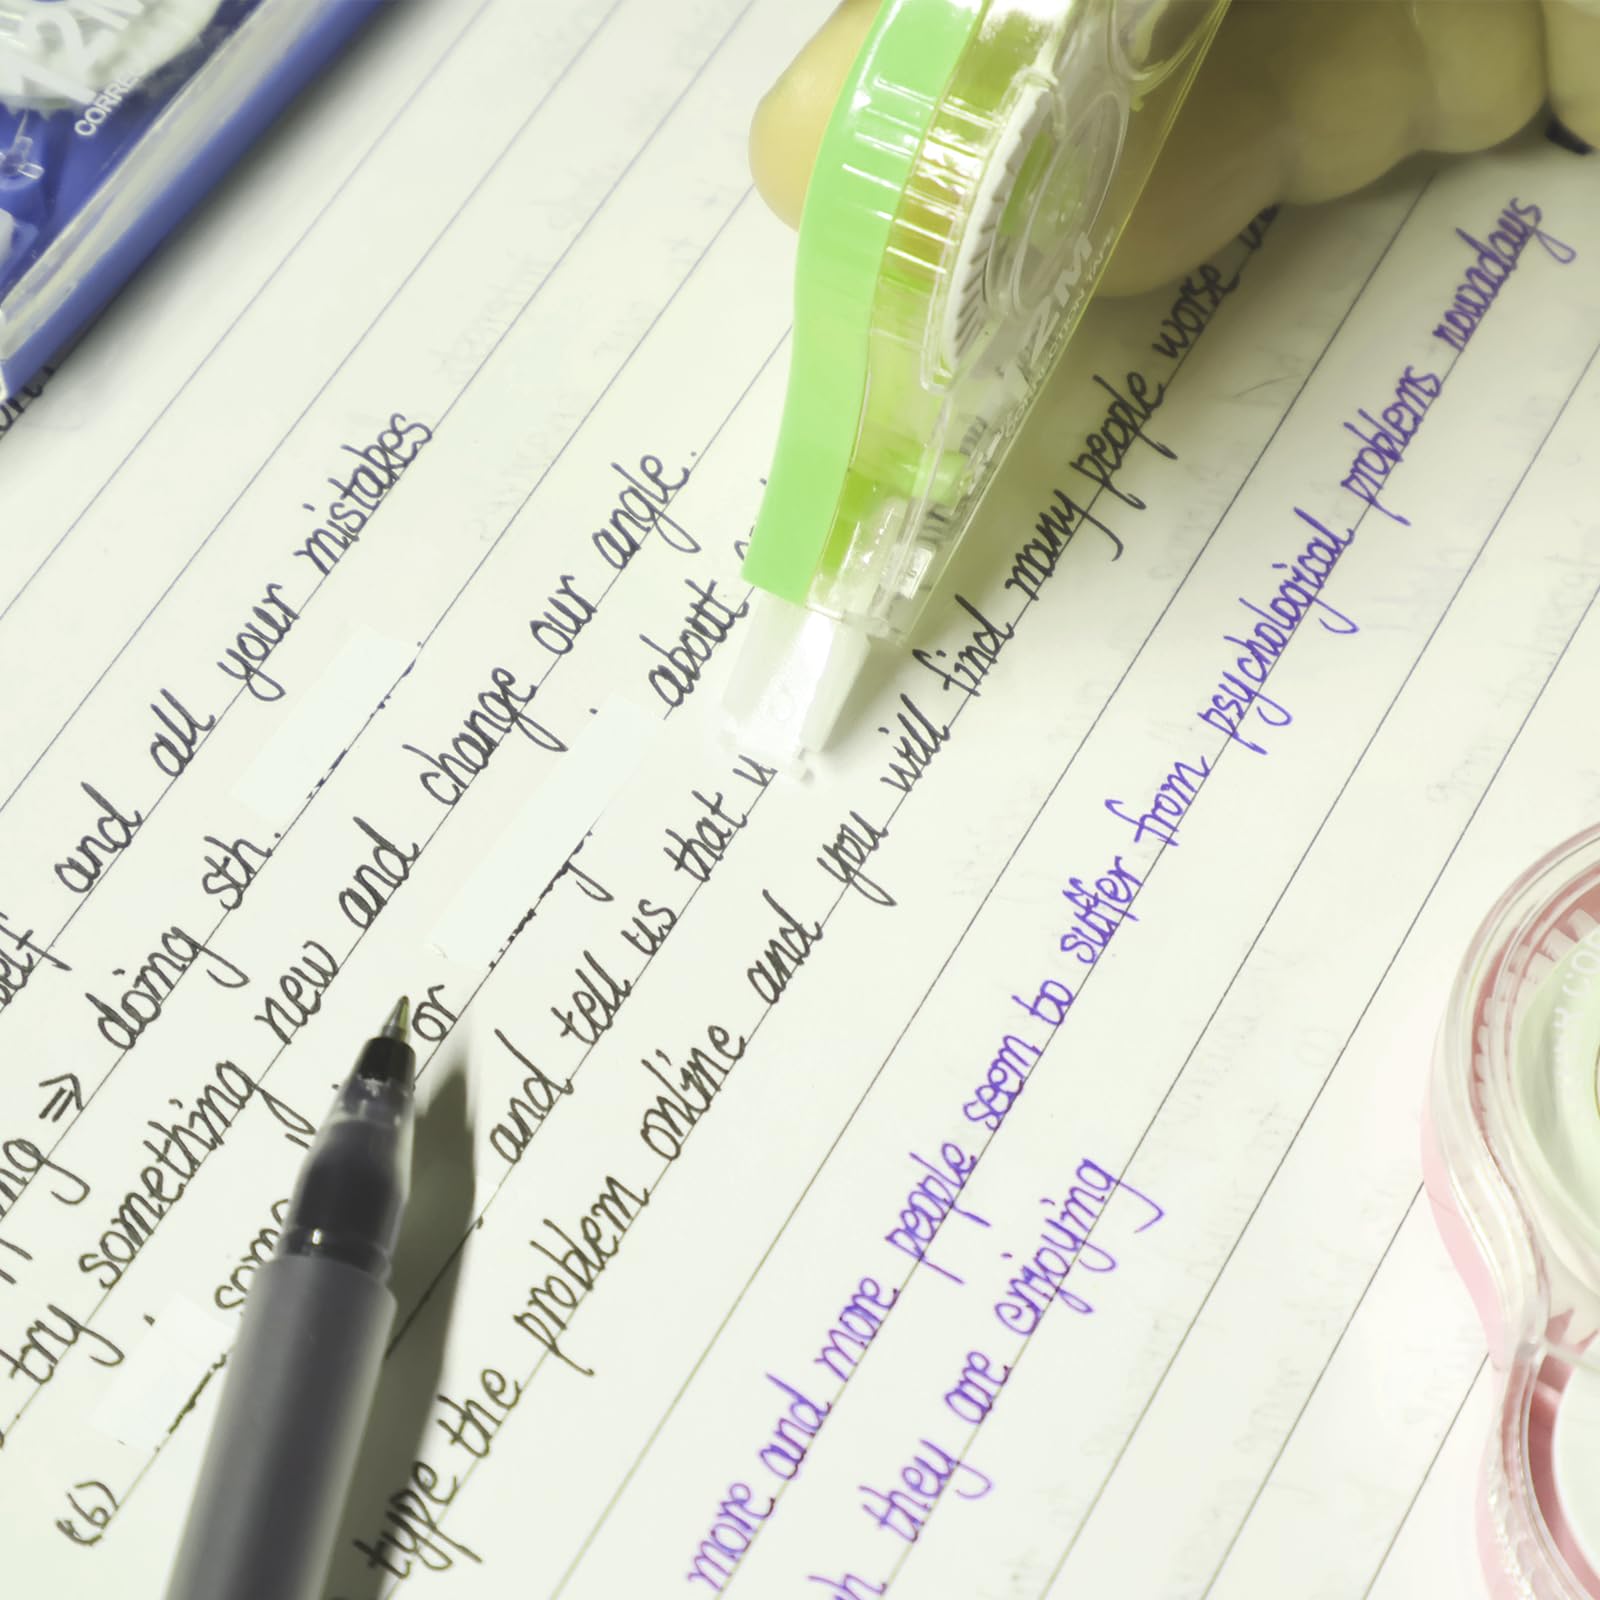 12M
CORRE
and all your mistakes
doing sth.
try something new and change our angle.
(6) or about
and tell us that u
type the problem online and you will find many people worse
more and more people seem to suffer from psychological problems nowadays
they are enjoying
12M
CORRECTION TAPE